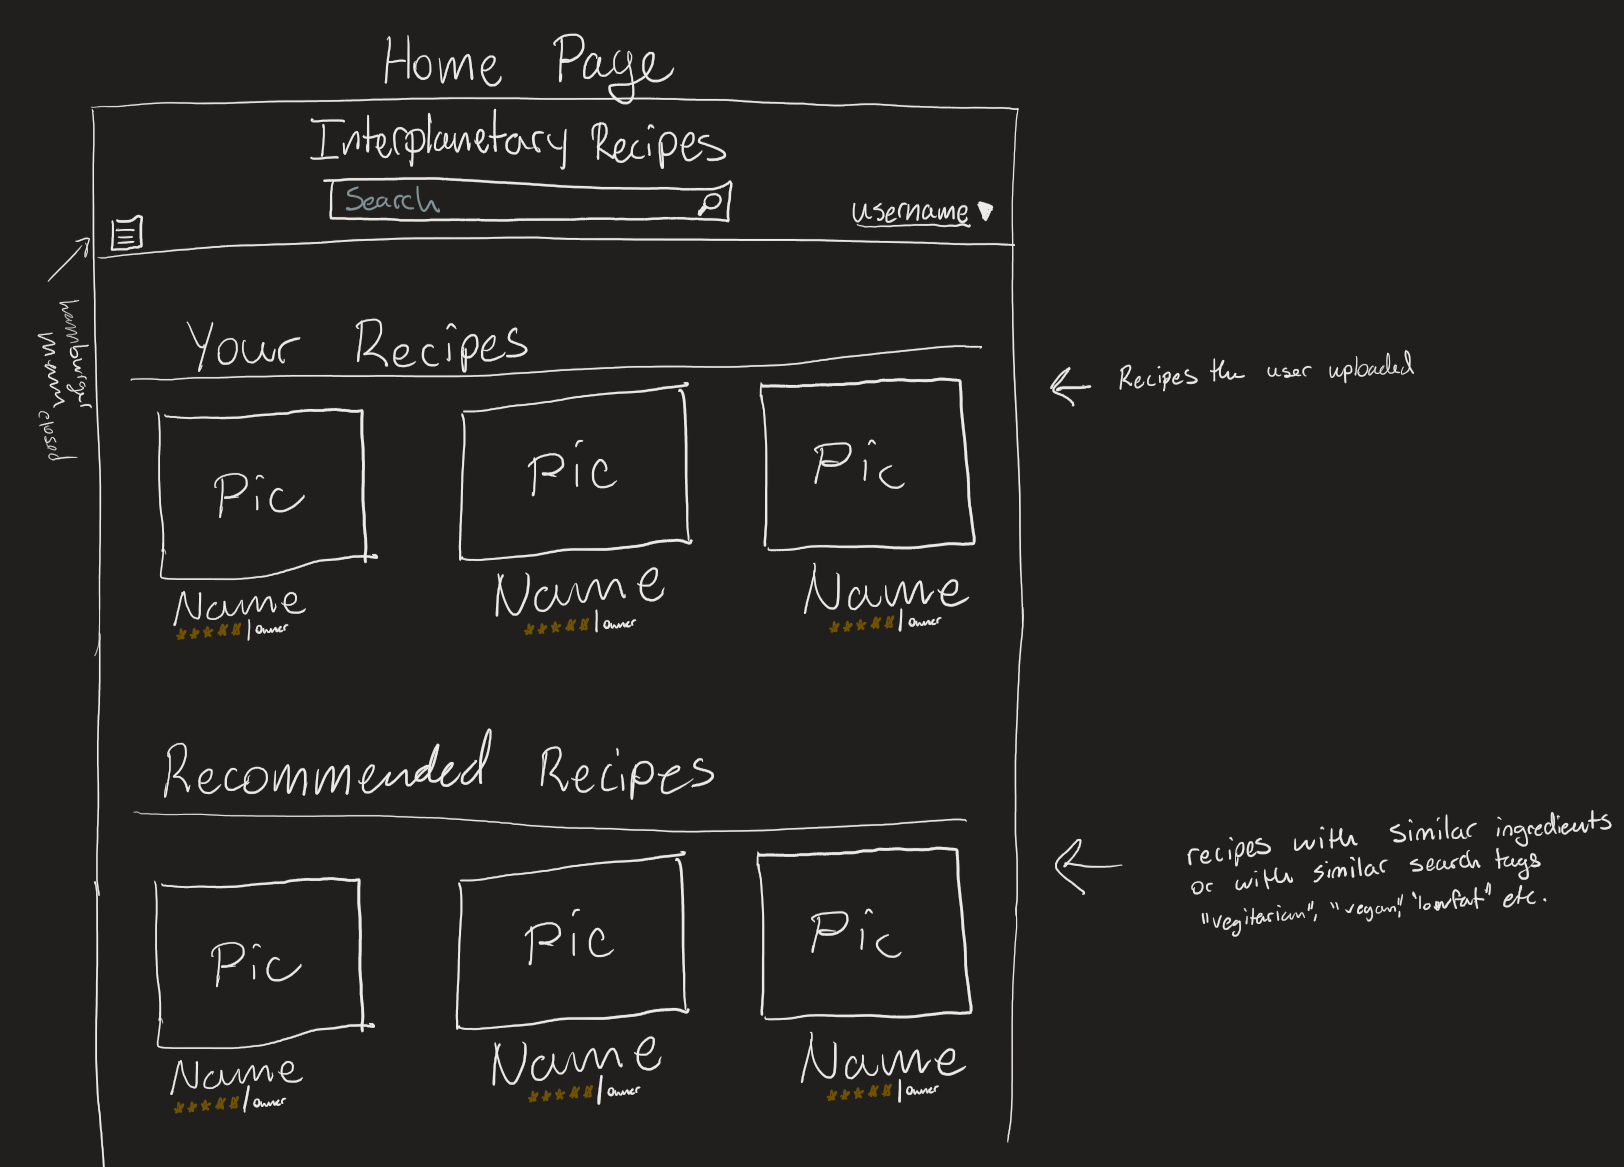 Home Page
Interplanetary Recipes
Search
username
hamburger
menu
closed
Your Recipes
Recipes the user uploaded
Pic
Pic
Pic
Name
Name
Name
| Owner
| Owner
| Owner
Recommended Recipes
recipes with similar ingredients
or with similar search tags
"vegitarian", "vegan", "lowfat" etc.
Pic
Pic
Pic
Name
Name
Name
| Owner
| Owner
| Owner